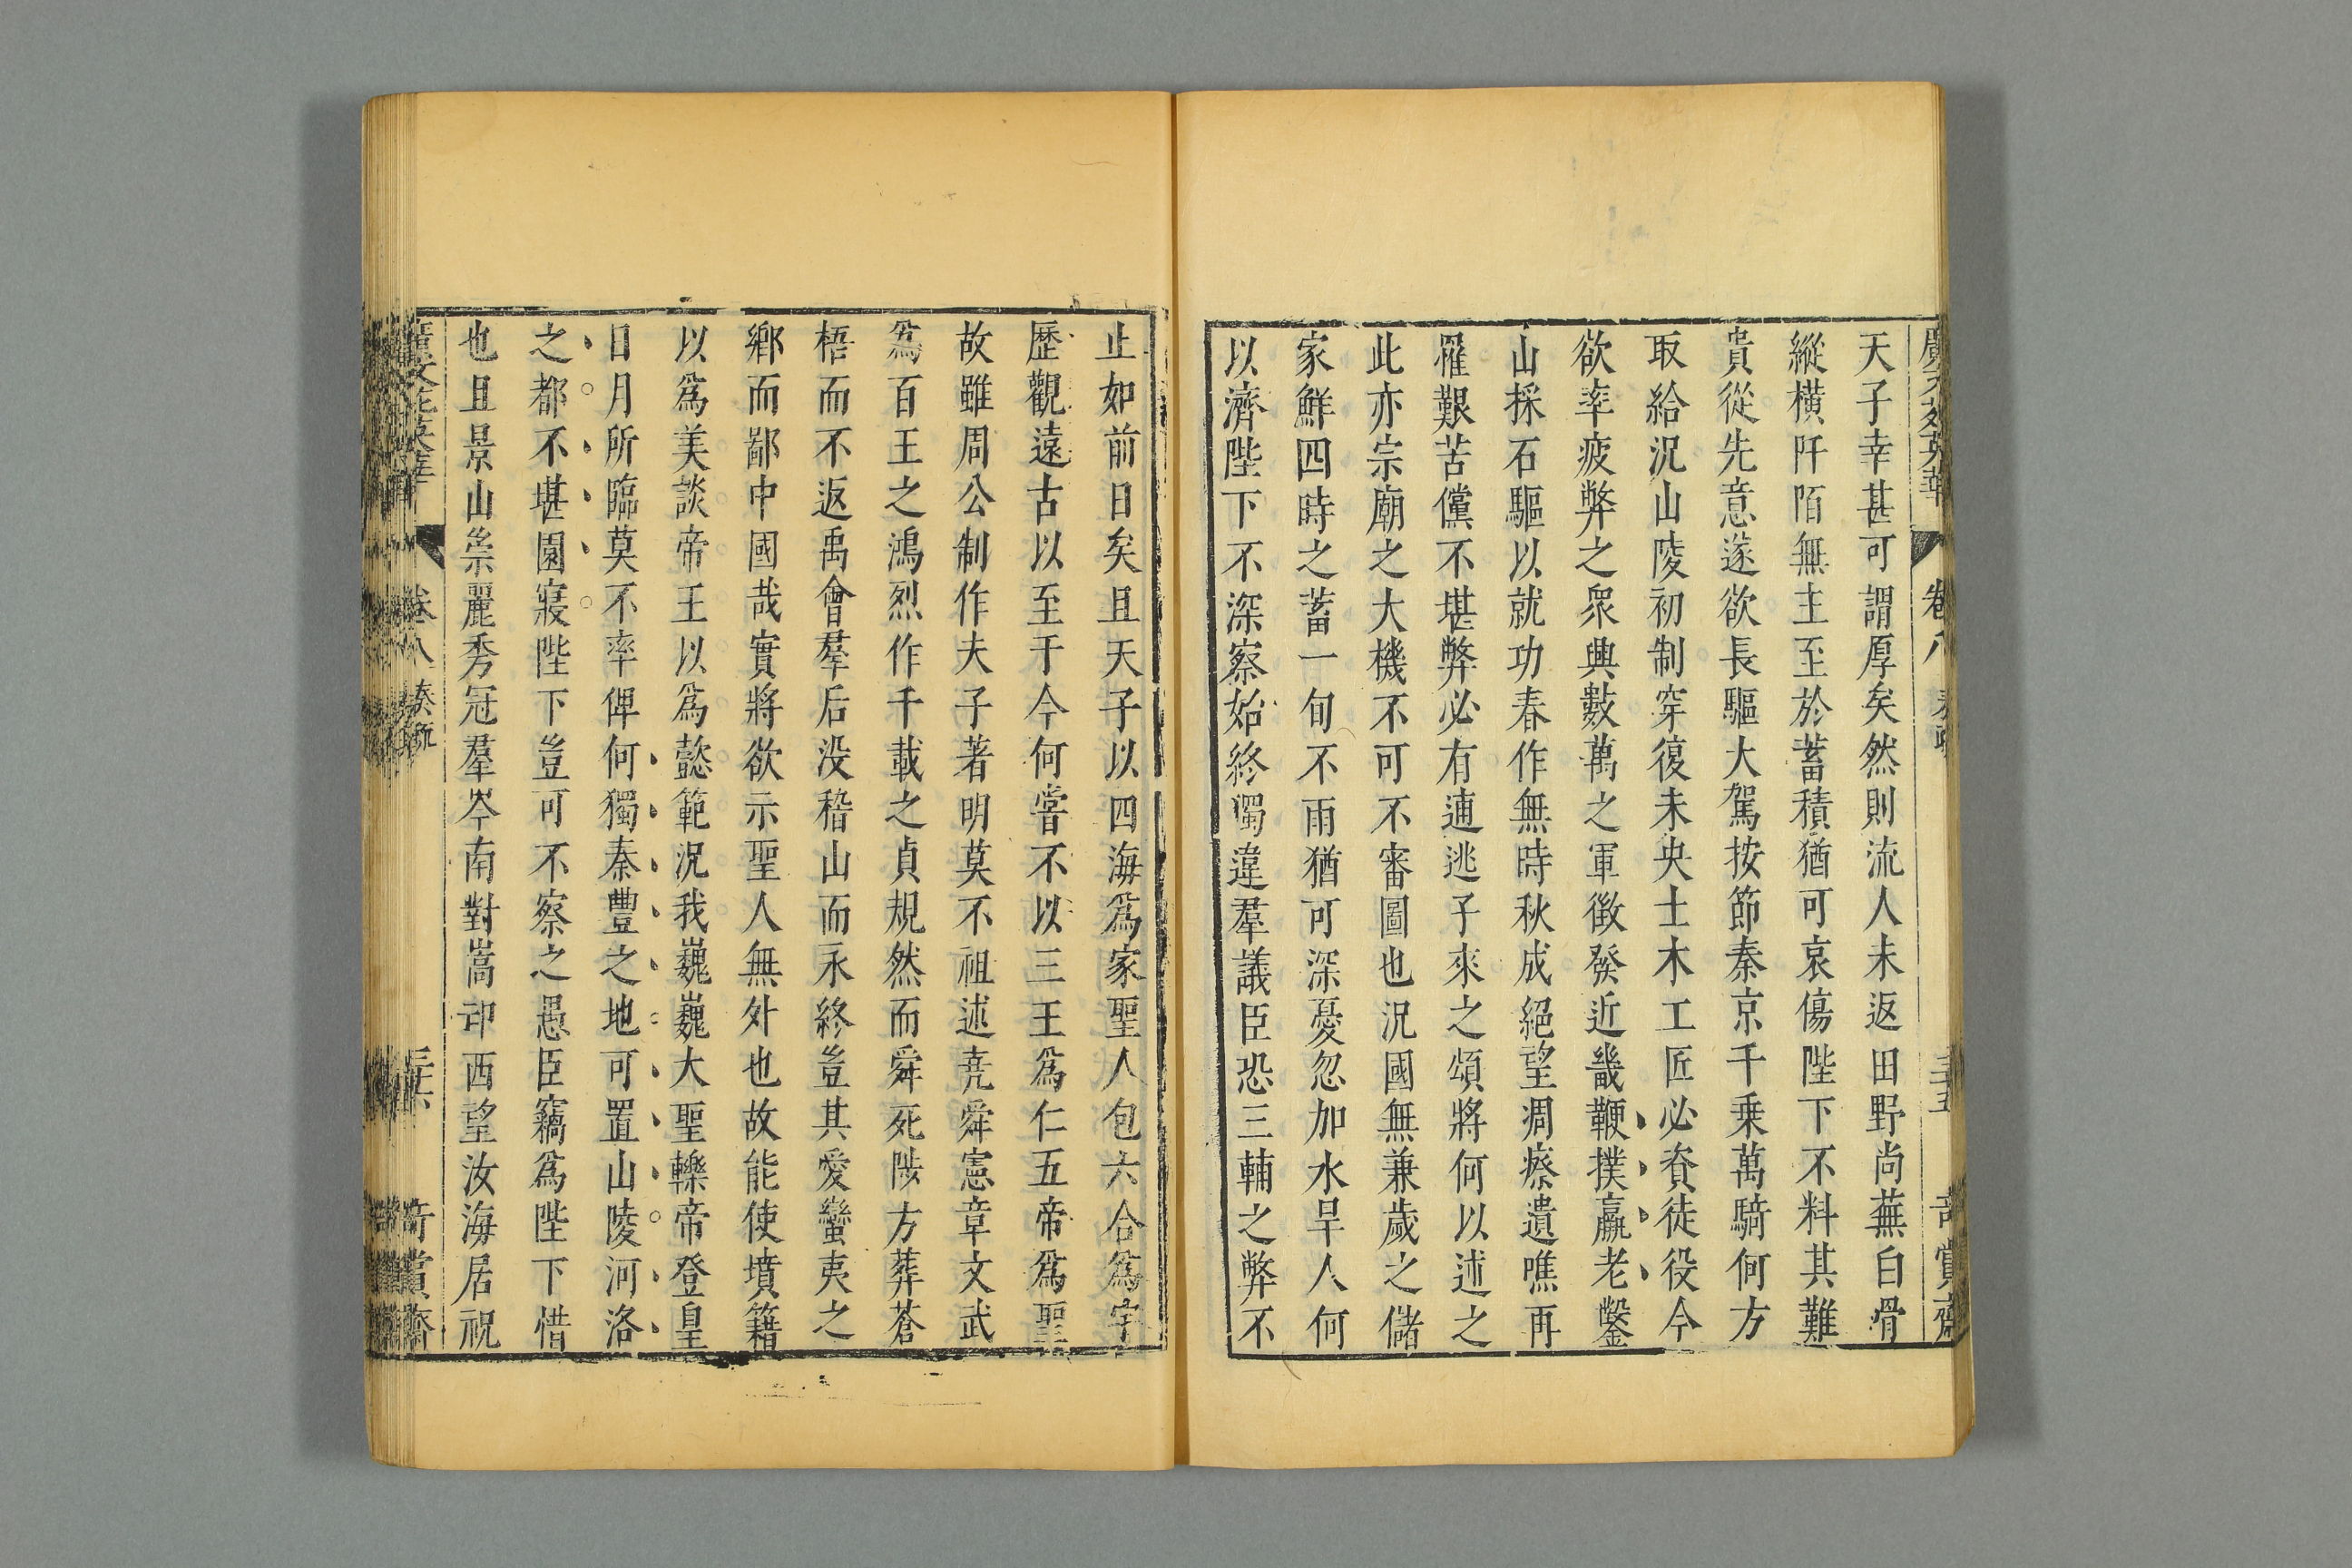 天子幸甚可謂厚矣然則流人未返田野尚蕪白骨
縱橫阡陌無主至於蓄積猶可哀傷陛下不料其難
貴從先意遂欲長驅大駕按節秦京千乗萬騎何方
取給況山陵初制穿復未央土木工匠必資徒役今
欲率疲弊之衆興數萬之軍徵發近畿鞭撲羸老鑿
山採石驅以就功春作無時秋成絕望凋瘵遺噍再
罹艱苦儻不堪弊必有逋逃子來之頌將何以述之
此亦宗廟之大機不可不審圖也況國無兼歲之儲
家鮮四時之蓄一旬不雨猶可深憂忽加水旱人何
以濟陛下不深察始終獨違羣議臣恐三輔之弊不
止如前日矣且天子以四海爲家聖人包六合爲宇
歷觀遠古以至于今何嘗不以三王爲仁五帝爲聖
故雖周公制作夫子著明莫不祖述堯舜憲章文武
爲百王之鴻烈作千載之貞規然而舜死陟方葬蒼
梧而不返禹會羣后没稽山而永終豈其愛蠻夷之
鄉而鄙中國哉實將欲示聖人無外也故能使墳籍
以爲美談帝王以爲懿範況我巍巍大聖轢帝登皇
日月所臨莫不率俾何獨秦豐之地可置山陵河洛
之都不堪園寢陛下豈可不察之愚臣竊爲陛下惜
也且景山崇麗秀冠羣岑南對嵩邙西望汝海居祝
廣文苑英華 卷八 奏疏 三六 奇賞齋